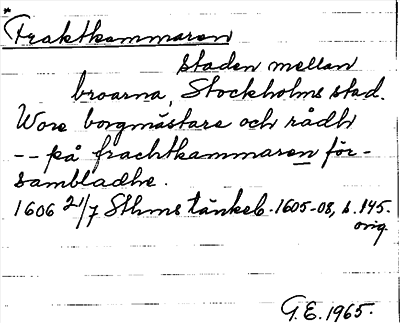 *
Fraktkammaren
staden mellan
broarna, Stockholms stad.
Wore borgmästare och rådh
-- på frachtkammaren för-
sambladhe.
1606 21/7 Sthms tänkeb. 1605-08, s. 145.
orig.
G.E. 1965.